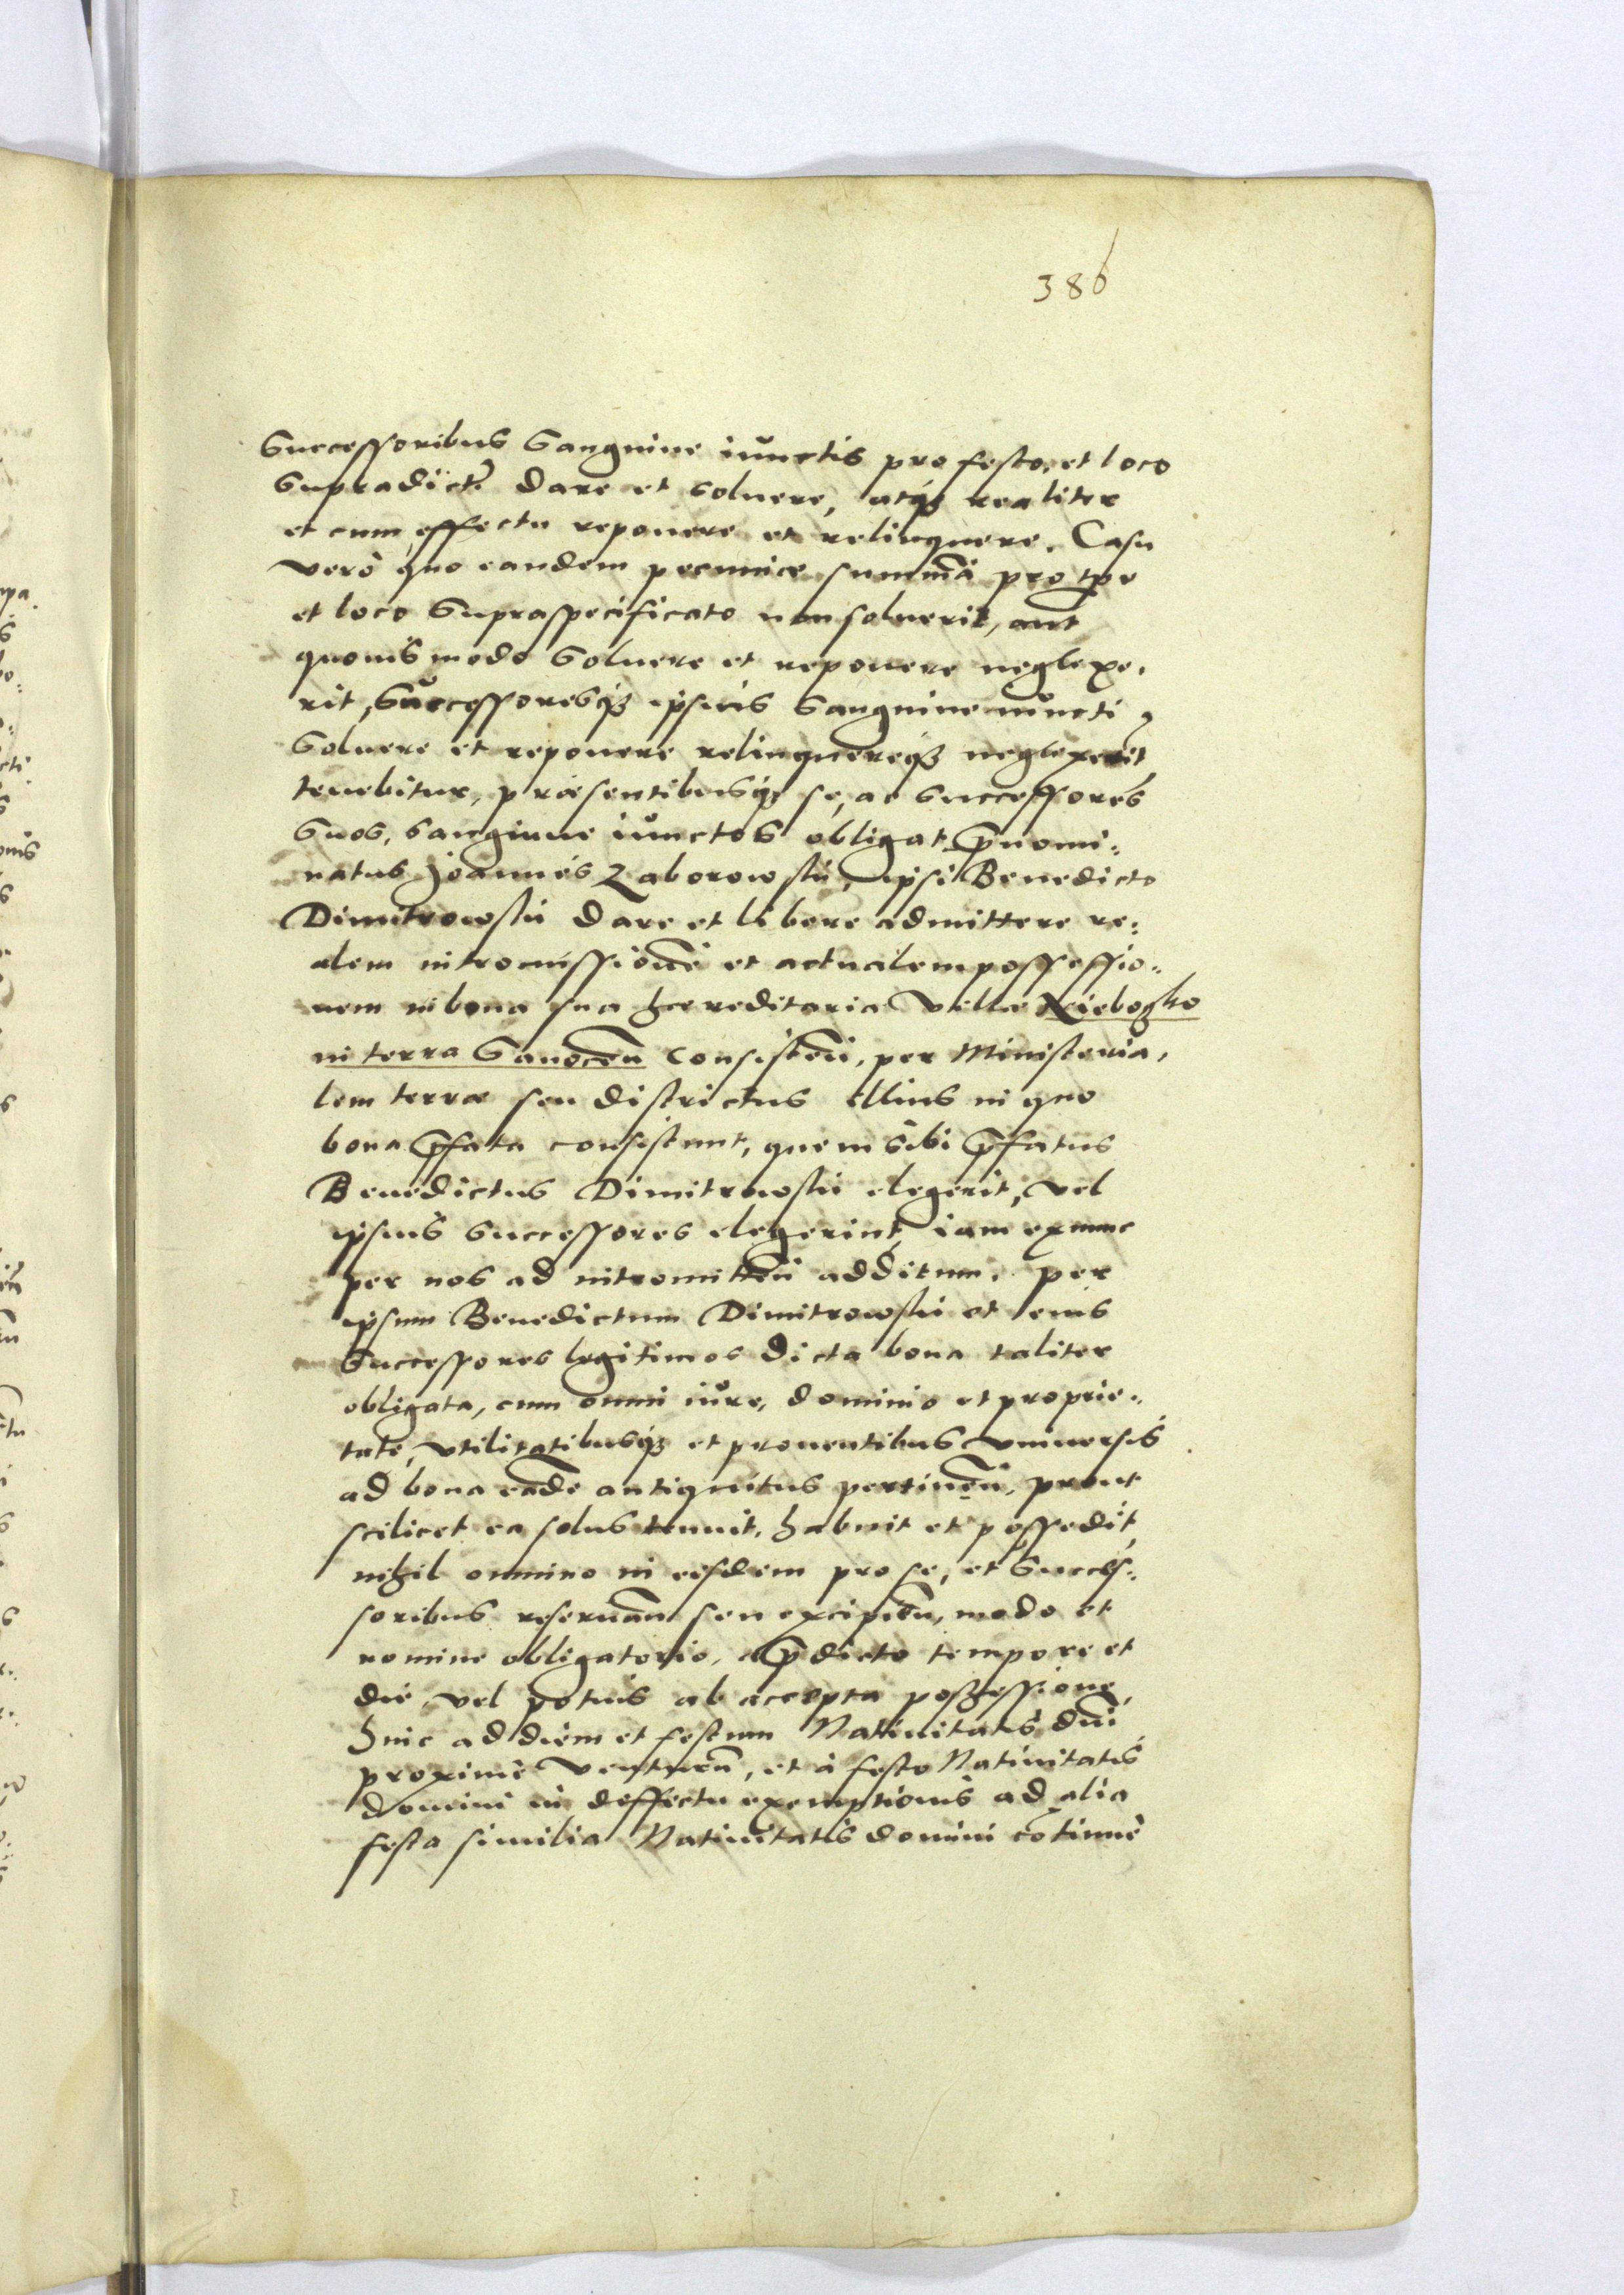 386
Successoribus Sanguine iunctis pro festo, et loco
Supradict. dare et soluere, atq3 realiter
et cum effectu reponere et relinquere. Casu
verò quo eandem pecuniæ summā pro tpe
et loco Supraspecificato non soluerit, aut
quouis modo Soluere et reponere neglexe,
rit, Successoresq3 ipsius Sanguine iuncti
Soluere et reponere relinquereq3 neglexerit
tenebitur, præsentibusq3 se, ac Successores
Suos, sangiune iunctos obligat p̄nomi:
natus Joannes Zaborowski, ipsi Benedicto
Dimitrowski dare et libere admittere re:
alem intromissionē et actualem possessio:
nem in bona sua hæreditaria villæ
in terra Sanocen̄ consisten̄, per Ministeria,
lem terræ seu districtus illius in quo
bona p̄fata consistunt, quem sibi p̄fatus
Benedictus Dimitrowski elegerit, vel
ipsius Successores elegerint, iam exnunc
per nos ad intromitten̄ additum, per
ipsum Benedictum Dimitrowski et eius
Successores legitimos dicta bona taliter
obligata, cum omni iure, dominio et proprie:
tate, vtilitatibusq3 et prouentibus vniuersis
ad bona eadē antiquitus pertinen̄, prout
scilicet ea solus tenuit, habuit et possedit,
nihil omnino in eisdem pro se, et Succes:
soribus reseruan̄ seu excipien̄, modo et
nomine obligatorio, à p̄dicto tempore et
die, vel potius ab accepta possessione,
huic ad diem et festum Natiuitatis dni
proximè venturū, et à festo Natiuitatis
Domini in deffectu exemptionis ad alia
festa similia Natiuitatis domini cōtinuè